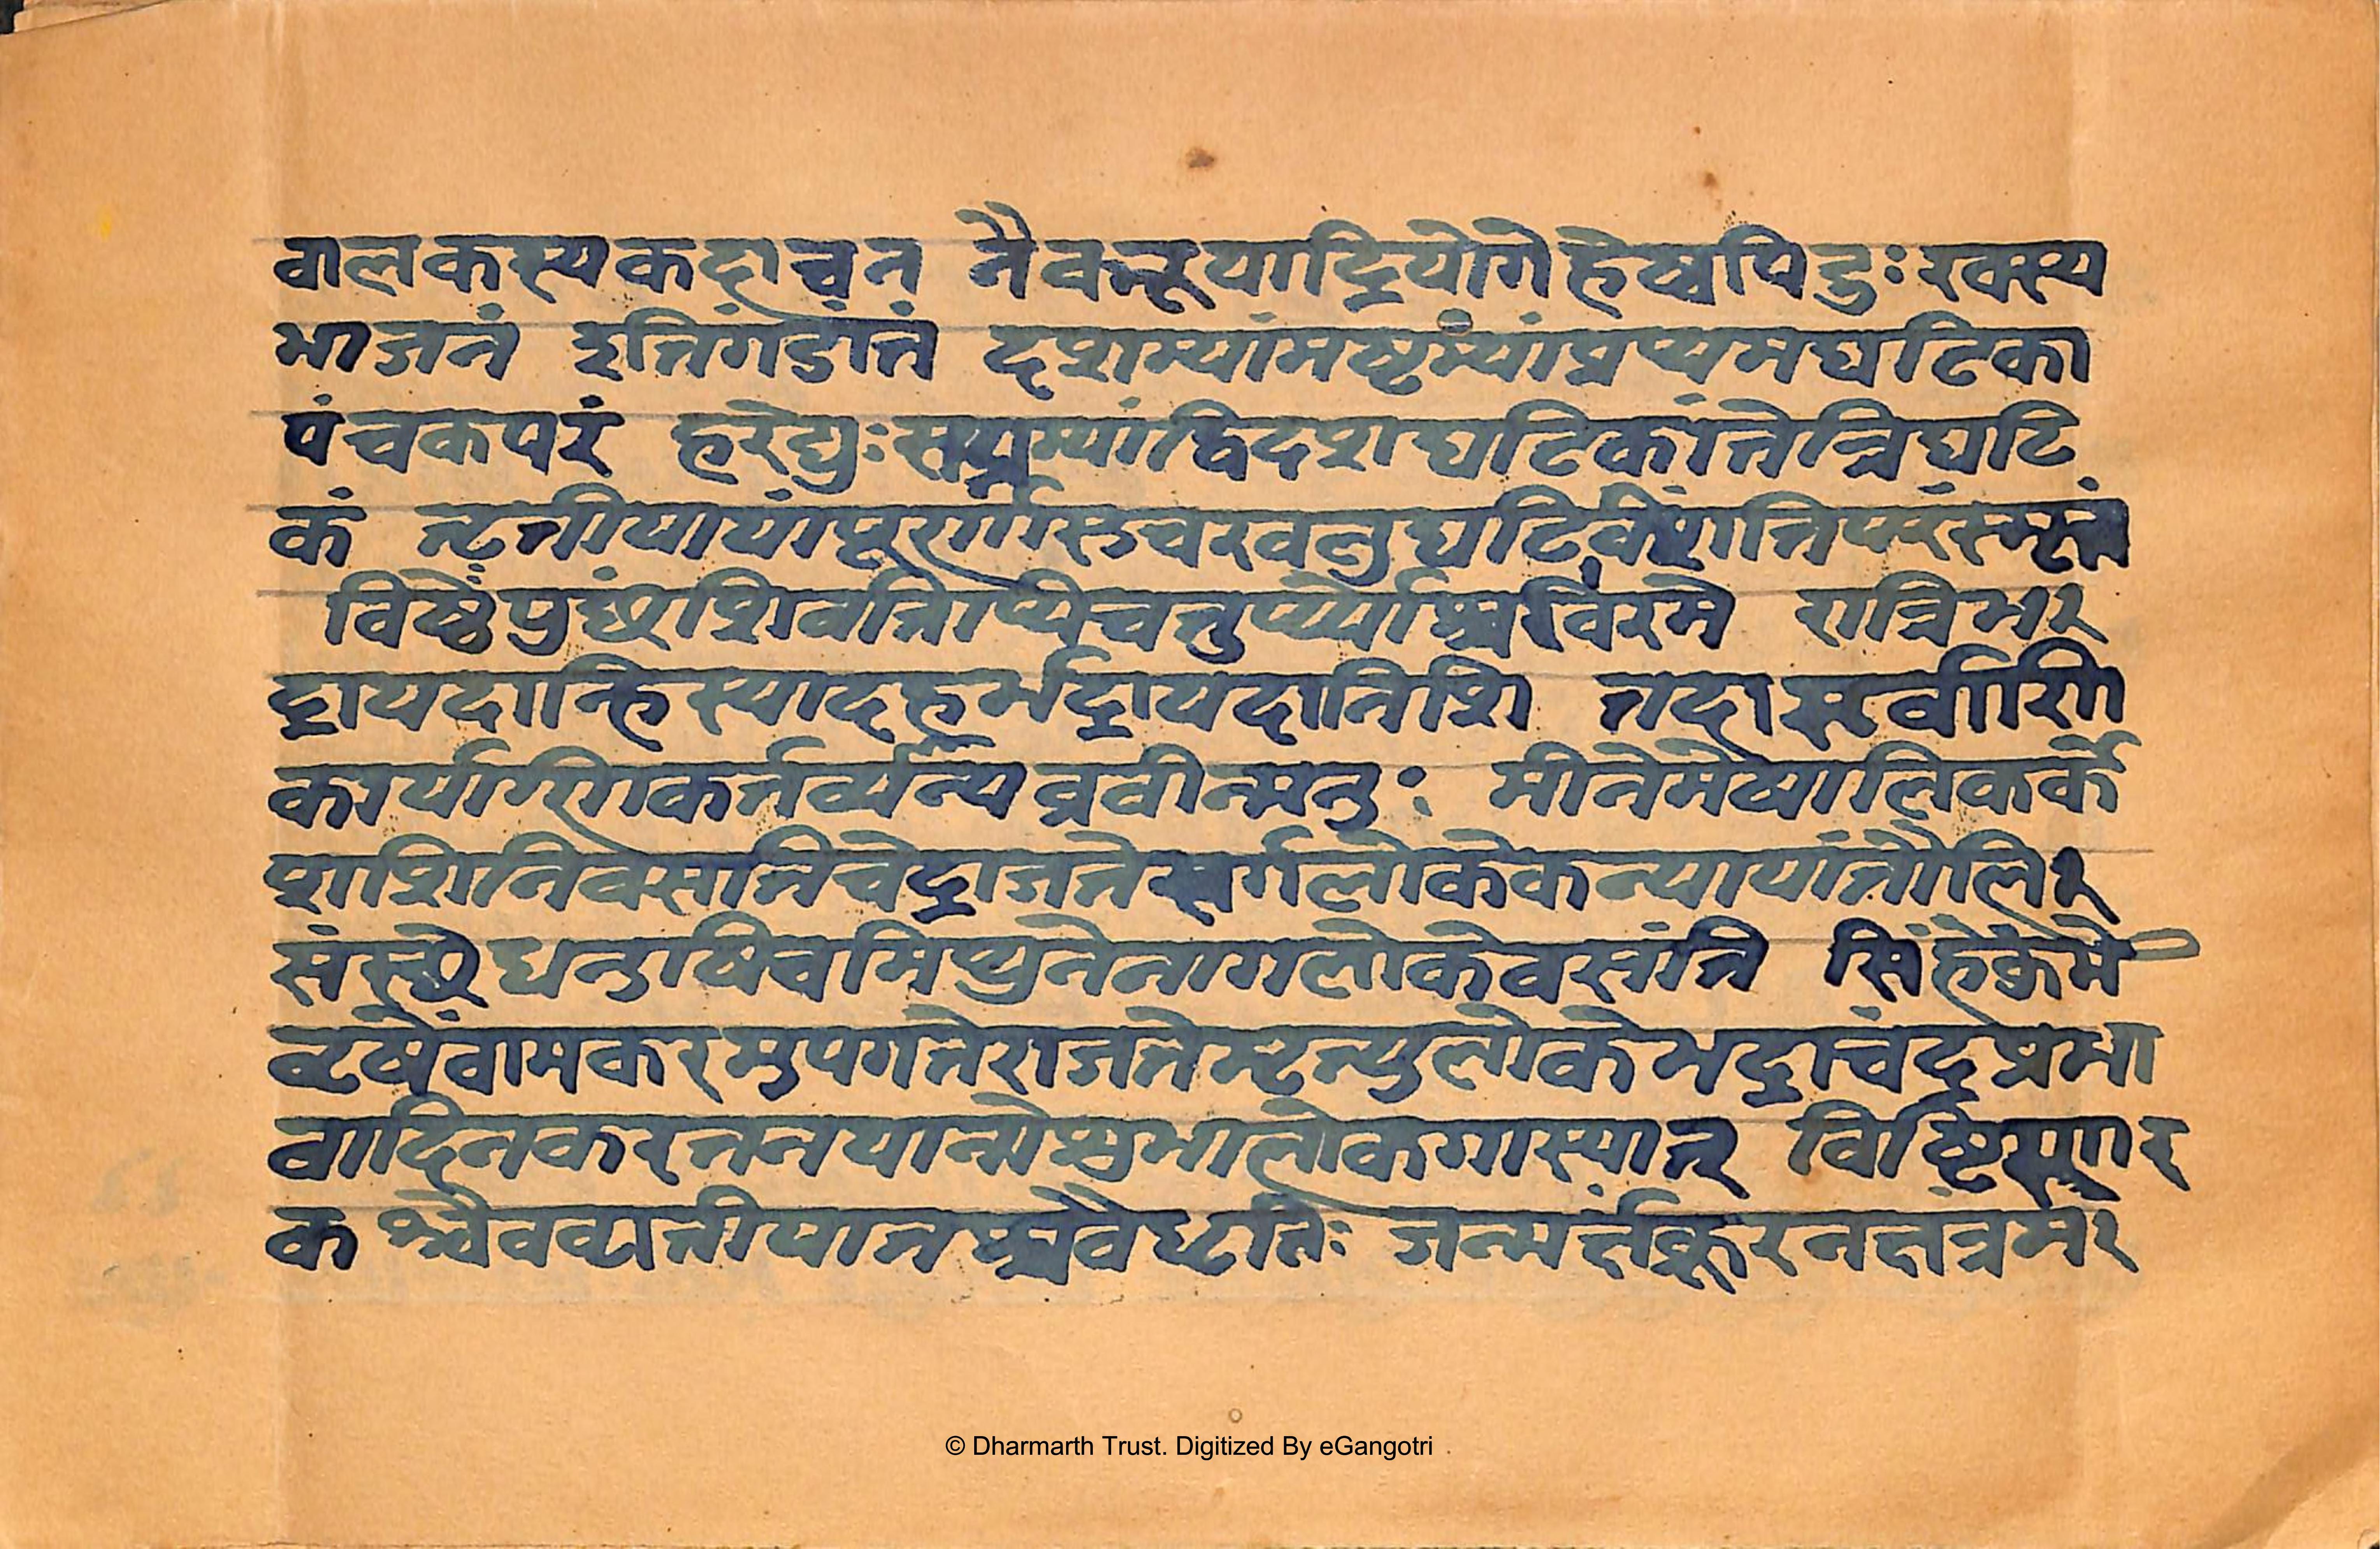 वालकस्यकदाचन नैवब्रूयाद्वियोगेहेष्वपिदुःखस्य
भाजनं इतिगंडांतं दशम्यामष्टम्यांप्रथमघटिका
पंचकपरं हरेद्युःसप्तम्यांद्विदशघटिकांतेत्रिघटि
कं तृतीयायां घटिविंशतिपरंस्मृतं
रात्रिभ
द्रायदान्हिस्यादहर्भद्रायदानिशि तदासर्वाणि
कार्याणिकर्तव्यन्यब्रवीन्मनुः मीनेमेषालिकर्के
शशिनिवसतिचेद्राजतेस्वर्गलोकेकन्यायांतौलि
संस्थे धनुषिचमिथुनेनागलोकेवसंति सिंहेकुंमे
वृषेवामकरमुपगतेराजतेमृत्युलोकेभद्राचंद्रप्रभा
वादिनकरतनयानोशुभालोकगास्यात् विष्टिरंगार
कश्चैवव्यतीपातश्चवैधृतिः जन्मर्त्तक्रूरनक्षत्रम
© Dharmarth Trust. Digitized By eGangotri